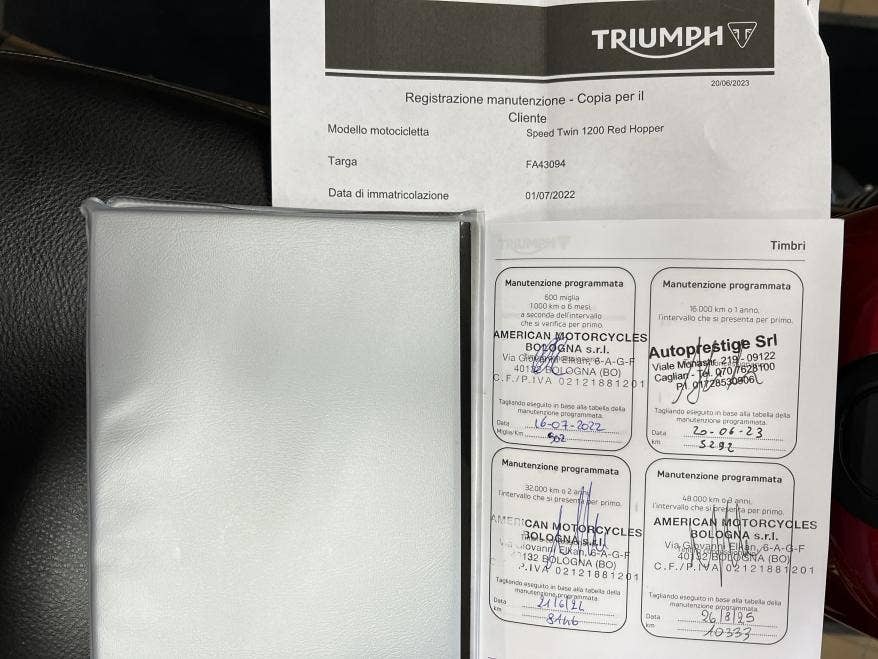 TRIUMPH
20/06/2023
Registrazione manutenzione - Copia per il
Cliente
Modello motocicletta Speed Twin 1200 Red Hopper
Targa FA43094
Data di immatricolazione 01/07/2022
TRIUMPH
Timbri
Manutenzione programmata
600 miglia
1000 km o 6 mesi,
a seconda dell'intervallo
che si verifica per primo.
AMERICAN MOTORCYCLES
BOLOGNA s.r.l.
Via Giovanni Elkan, 6-A-G-F
40132 BOLOGNA (BO)
C.F./P.IVA 02121881201
Tagliando eseguito in base alla tabella della
manutenzione programmata.
Data 16-07-2022
Miglia/Km 502
Manutenzione programmata
16.000 km o 1 anno,
l'intervallo che si presenta per primo.
Autoprestige Srl
Viale Monastir, 219 - 09122
Cagliari - Tel. 070 7628100
P.I. 01728530906
Tagliando eseguito in base alla tabella della
manutenzione programmata.
Data 20-06-23
km 5292
Manutenzione programmata
32.000 km o 2 anni,
l'intervallo che si presenta per primo.
AMERICAN MOTORCYCLES
BOLOGNA s.r.l.
Via Giovanni Elkan, 6-A-G-F
40132 BOLOGNA (BO)
P.IVA 02121881201
Tagliando eseguito in base alla tabella della
manutenzione programmata.
Data 21/6/24
km 8146
Manutenzione programmata
48.000 km o 3 anni,
l'intervallo che si presenta per primo.
AMERICAN MOTORCYCLES
BOLOGNA s.r.l.
Via Giovanni Elkan, 6-A-G-F
40132 BOLOGNA (BO)
C.F./P.IVA 02121881201
Tagliando eseguito in base alla tabella della
manutenzione programmata.
Data 26/8/25
km 10333